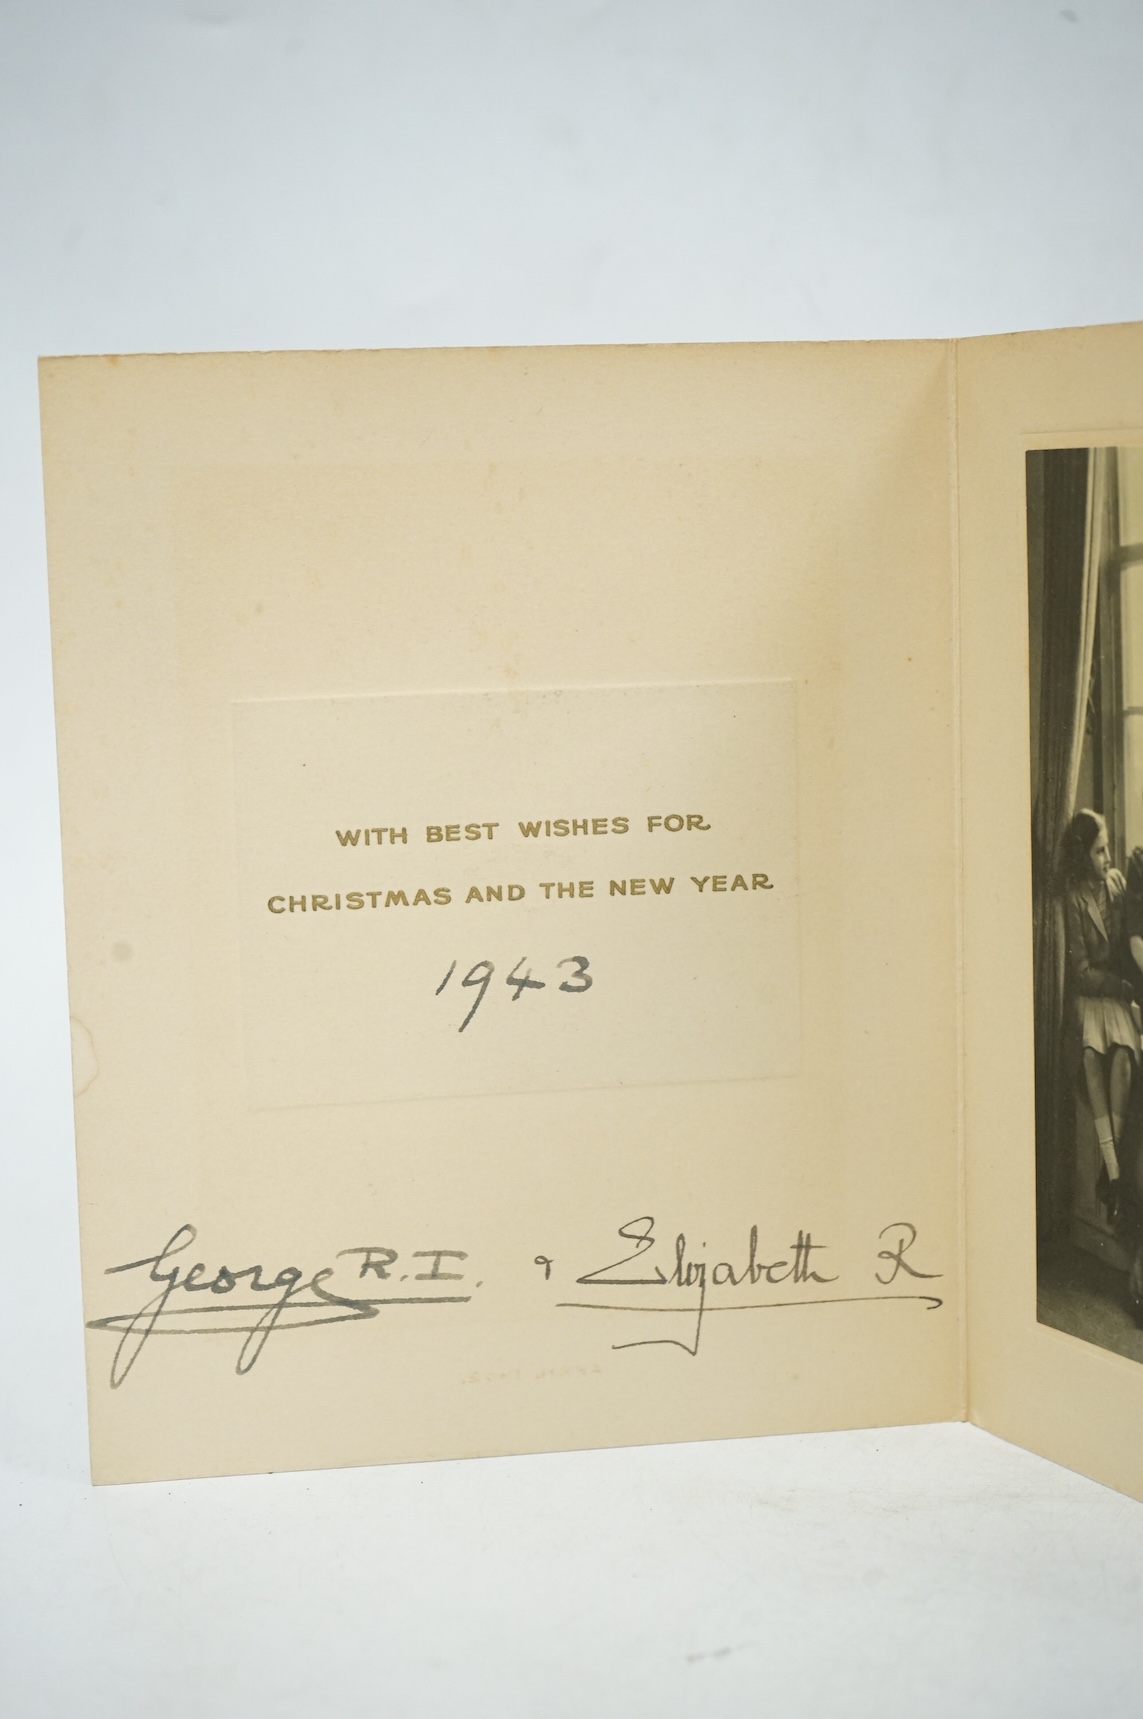 WITH BEST WISHES FOR
CHRISTMAS AND THE NEW YEAR
1943
George R.I. & Elizabeth R